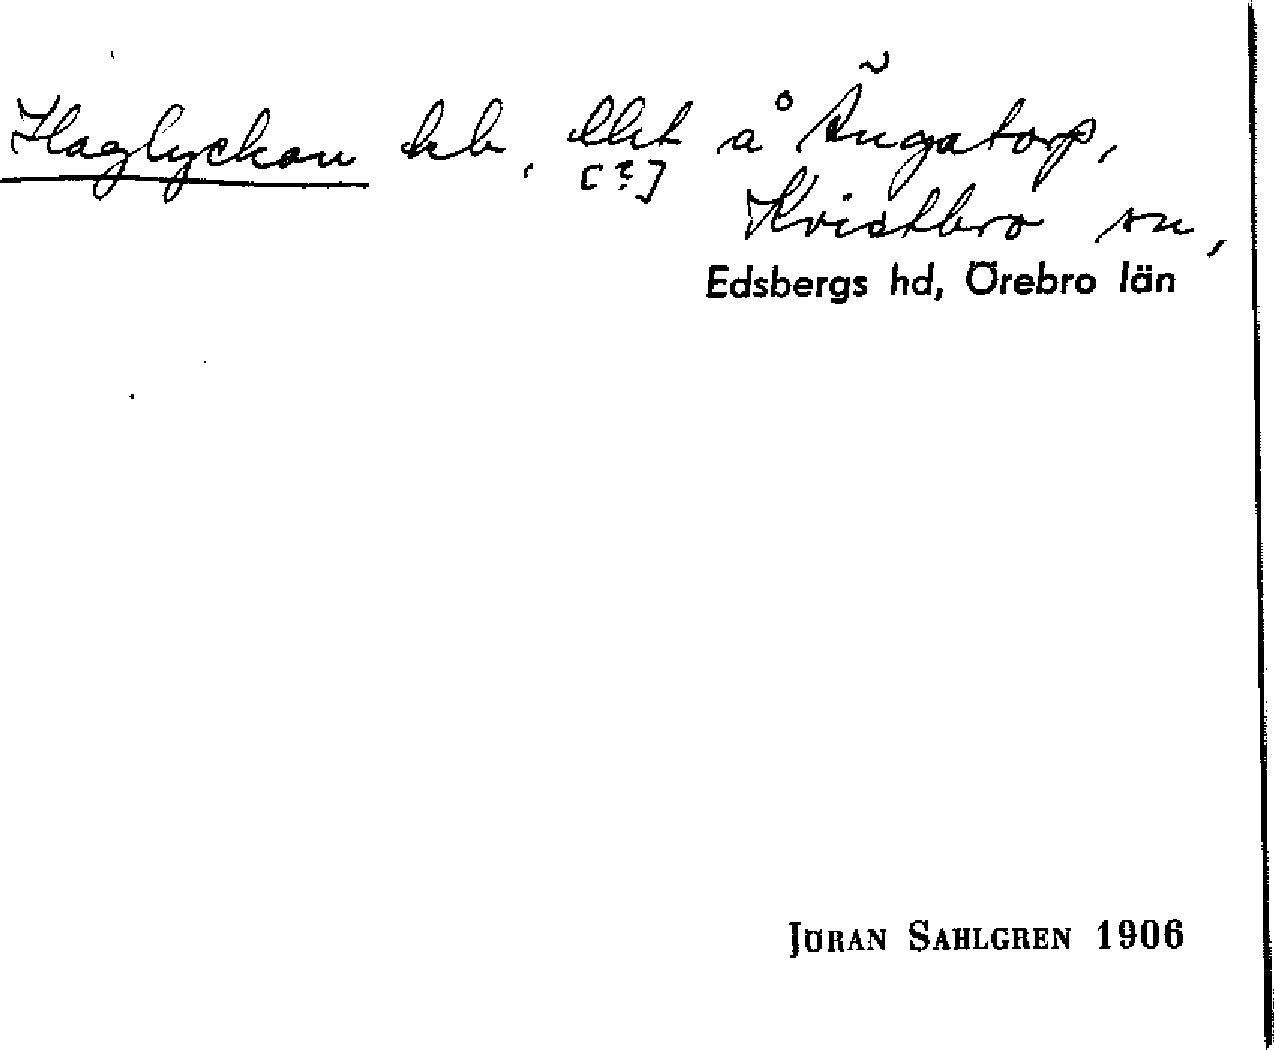 Haglyckan hb, å Ängatorp,
[?]
Kvistbro sn,
Edsbergs hd, Örebro län
JÖRAN SAHLGREN 1906